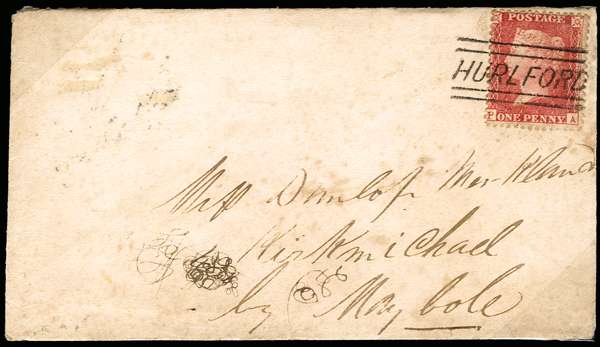 POSTAGE
HURLFORD
P ONE PENNY A
Miss Dunlop
Kirkmichael
by Maybole